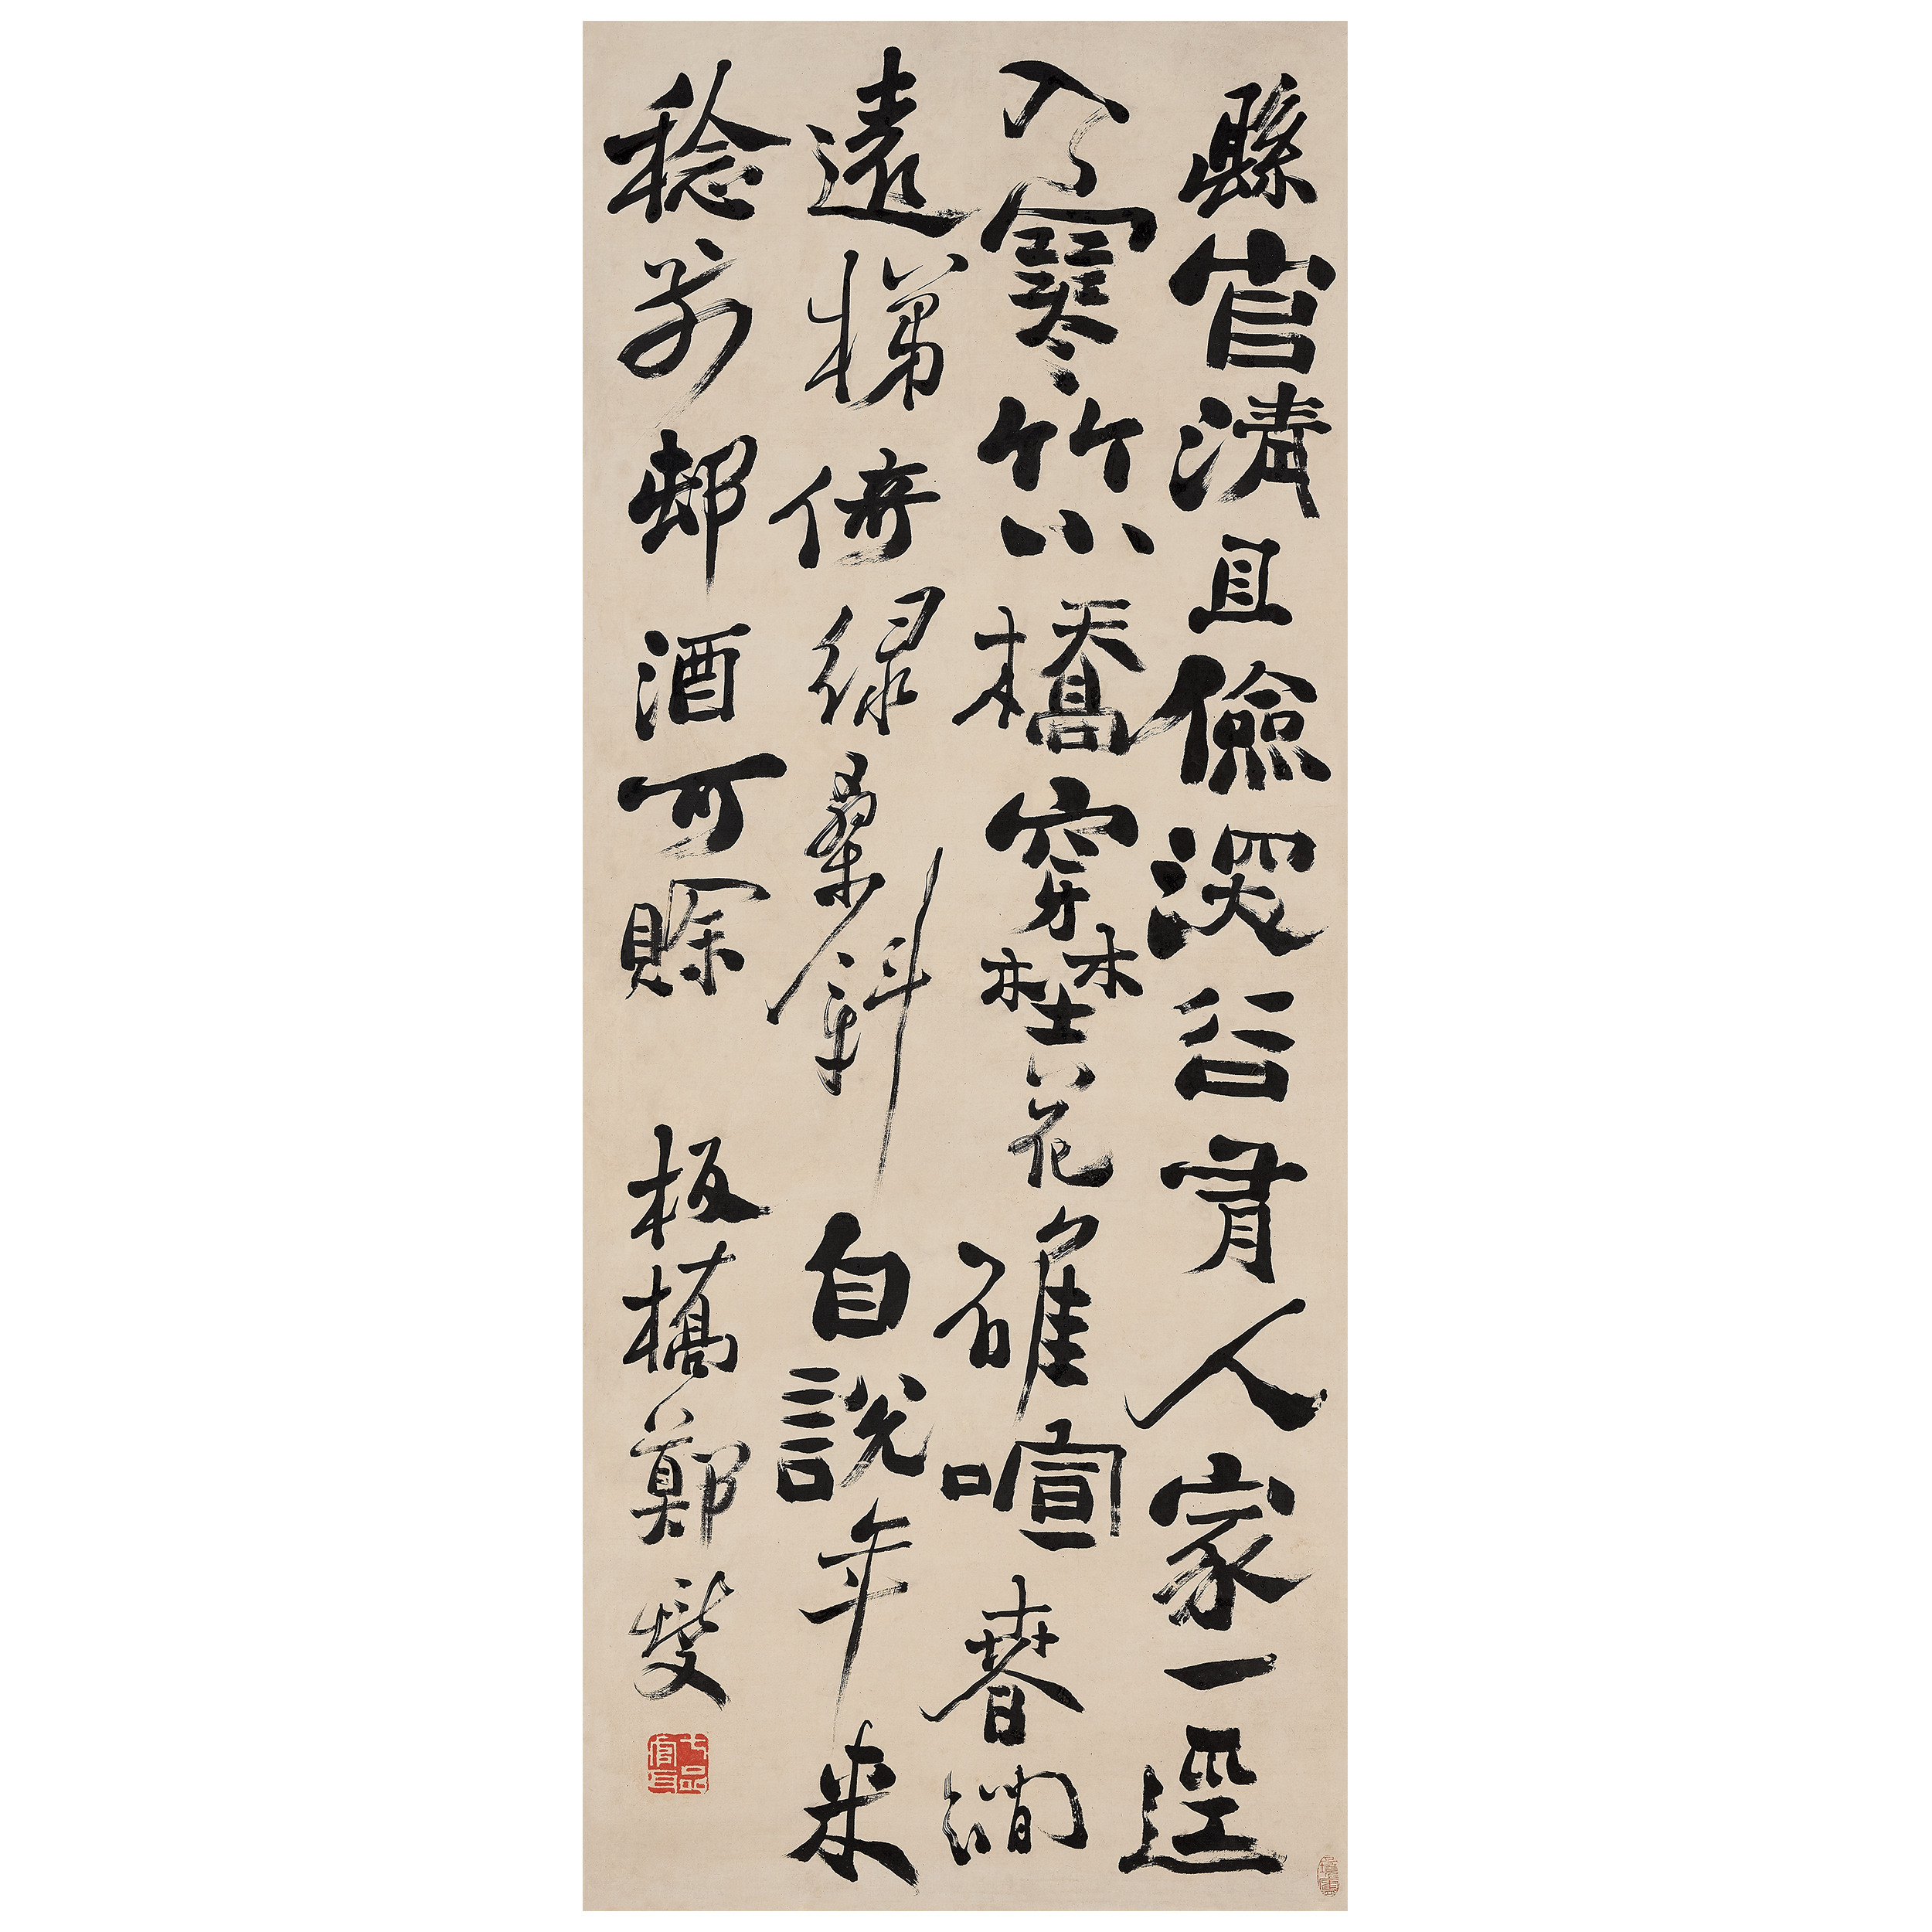 縣官清且儉深谷有人家一逕
入寒竹小橋穿野花碓喧春澗
遠梯倚綠桑斜自說年来
稔前邨酒可賒 板橋鄭燮
七品官耳